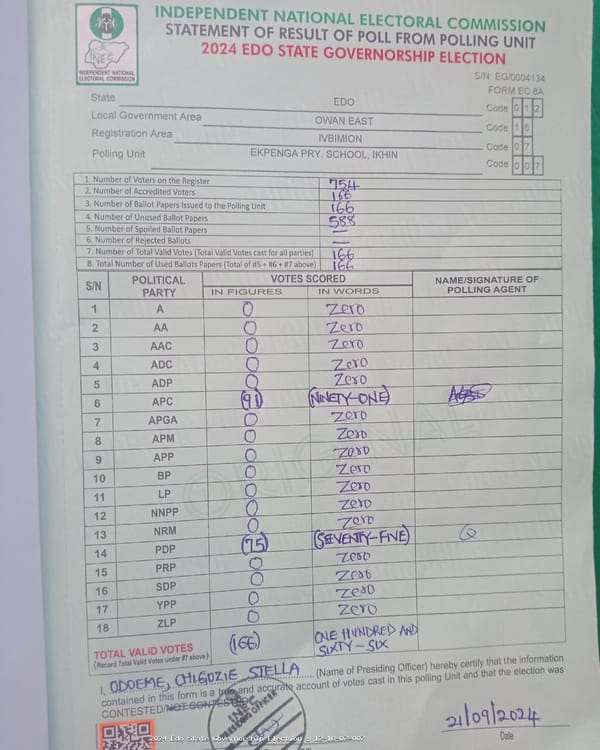 INDEPENDENT NATIONAL ELECTORAL COMMISSION
STATEMENT OF RESULT OF POLL FROM POLLING UNIT
2024 EDO STATE GOVERNORSHIP ELECTION
INEC
INDEPENDENT NATIONAL
ELECTORAL COMMISSION
S/N: EG/0004134
FORM EC 8A
State EDO Code 0 1 2
Local Government Area OWAN EAST Code 1 6
Registration Area IVBIMION Code 0 7
Polling Unit EKPENGA PRY. SCHOOL, IKHIN Code 0 0 7
1. Number of Voters on the Register 754
2. Number of Accredited Voters 166
3. Number of Ballot Papers Issued to the Polling Unit 166
4. Number of Unused Ballot Papers 588
5. Number of Spoiled Ballot Papers —
6. Number of Rejected Ballots —
7. Number of Total Valid Votes (Total Valid Votes cast for all parties) 166
8. Total Number of Used Ballots Papers (Total of #5 + #6 + #7 above) 166
S/N POLITICAL PARTY VOTES SCORED NAME/SIGNATURE OF POLLING AGENT
IN FIGURES IN WORDS
1 A 0 Zero
2 AA 0 Zero
3 AAC 0 Zero
4 ADC 0 Zero
5 ADP 0 Zero
6 APC (91) (NINETY-ONE)
7 APGA 0 Zero
8 APM 0 Zero
9 APP 0 Zero
10 BP 0 Zero
11 LP 0 Zero
12 NNPP 0 Zero
13 NRM 0 Zero
14 PDP (75) (SEVENTY-FIVE)
15 PRP 0 Zero
16 SDP 0 Zero
17 YPP 0 Zero
18 ZLP 0 Zero
ORIGINAL
TOTAL VALID VOTES (166) ONE HUNDRED AND
(Record Total Valid Votes under #7 above) SIXTY-SIX
I, ODOEME, CHIGOZIE STELLA (Name of Presiding Officer) hereby certify that the information
contained in this form is a true and accurate account of votes cast in this polling Unit and that the election was
CONTESTED/NOT CONTESTED.
INEC
21/09/2024
Date
2024 Edo State Governorship Election - 12-16-07-007